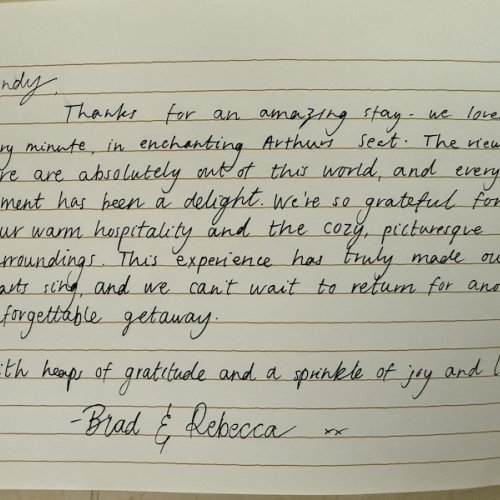 ndy,
Thanks for an amazing stay - we love
ry minute, in enchanting Arthurs Seat. The view
re are absolutely out of this world, and every
ment has been a delight. We're so grateful for
ur warm hospitality and the cozy, picturesque
rroundings. This experience has truly made ou
arts sing, and we can't wait to return for ano
forgettable getaway.
ith heaps of gratitude and a sprinkle of joy and l
-Brad & Rebecca xx